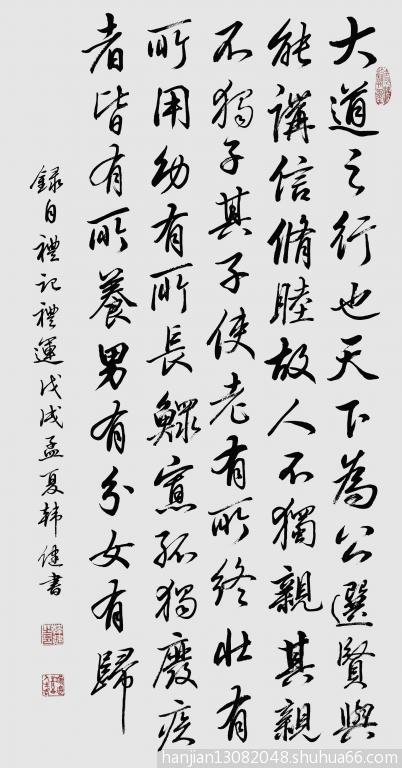 大道之行也天下為公選賢與
能講信脩睦故人不獨親其親
不獨子其子使老有所終壯有
所用幼有所長鰥寡孤獨廢疾
者皆有所養男有分女有歸
錄自禮記禮運戊戌孟夏韩健書
hanjian13082048.shuhua66.com